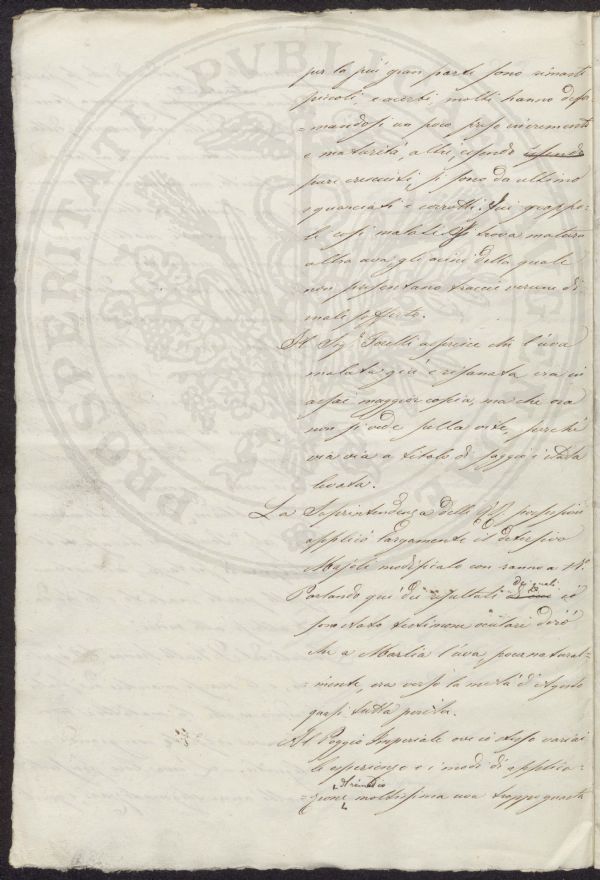 per la più gran parte sono rimasti
piccoli, e acerbi, molti hanno disfa-
=mandosi un poco preso incremento
e maturità, altri, essendo essendo
pure cresciuti, si sono da ultimo
squarciati e corrotti. Sui grappo-
li così malati si trova matura
altra uva, gli acini della quale
non presentano traccie verune di
male sofferto.
Il Sig. asserisce che l'uva
malata già e risanata era in
assai maggior copia, ma che ora
non si vede sulla vite, perchè
via via a titolo di saggio è stata
levata.
La Soprintendenza delle RR. possessioni
applicò largamente il detersivo
Majoli modificato con ranno a 14°.
Parlando quì dei resultati dei quali io
sono stato testimone oculare dirò
che a Marlia l'uva, pure natural-
mente, era verso la metà d'Agosto
quasi tutta perita.
Al Poggio Imperiale ove io stesso variai
le esperienze e i modi di applica-
=zione moltissima uva troppo guasta
PROSPERITATI PVBLICAE AVGENDAE